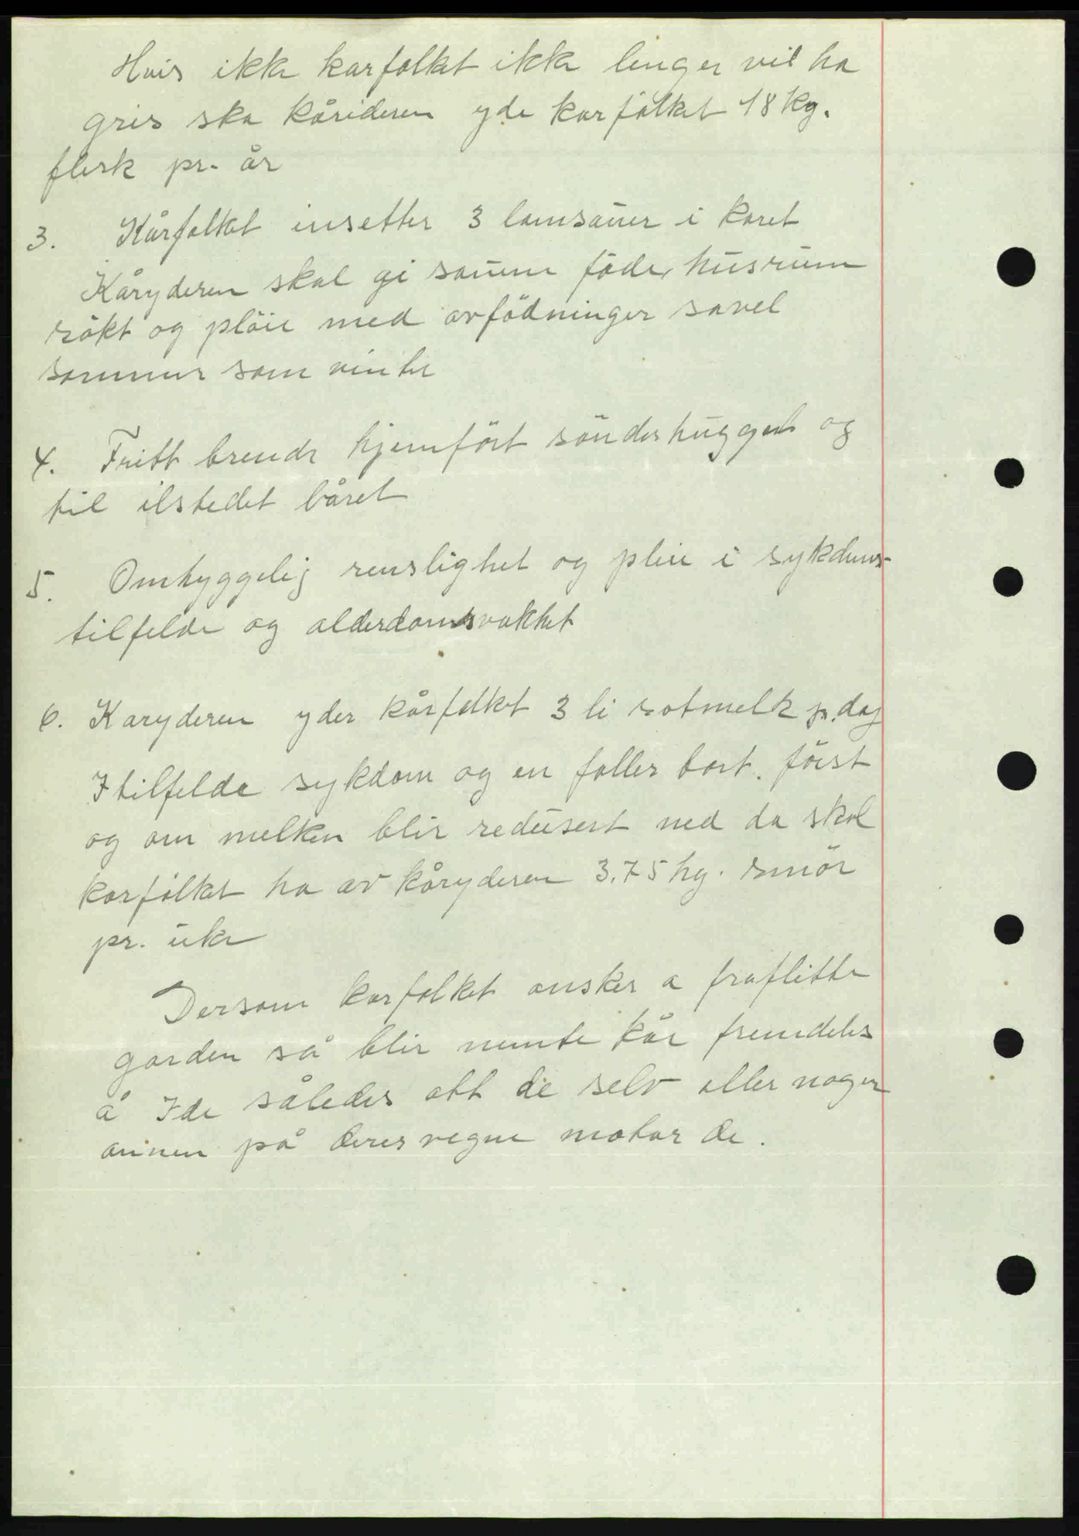 Hvis ikke karfolket ikke lenger vil ha
gris ska kårideren yde karfolket 18 kg.
flesk pr. år
3. Kårfolket insetter 3 lamsauer i karet
Kåryderen skal gi sauene föde, husrum
rökt og plöie med avfödninger savel
sommer som vinter
4. Fritt brende hjemfört sönderhugget og
til ilstedet båret
5. Omhyggelig renslighet og pleie i sykdoms-
tilfelde og alderdomsvakket
6. Karyderen yder kårfolket 3 li sotmelk p. dag
I tilfelde sykdom og en faller bort. först
og om melken blir redusert ned da skal
karfolket ha av kåryderen 3.75 hg. smör
pr. uke
Dersom karfolket ansker a fraflitte
garden så blir nemte kår fremdeles
å Ide således att de selv eller nogen
annen på deres vegne motar de.